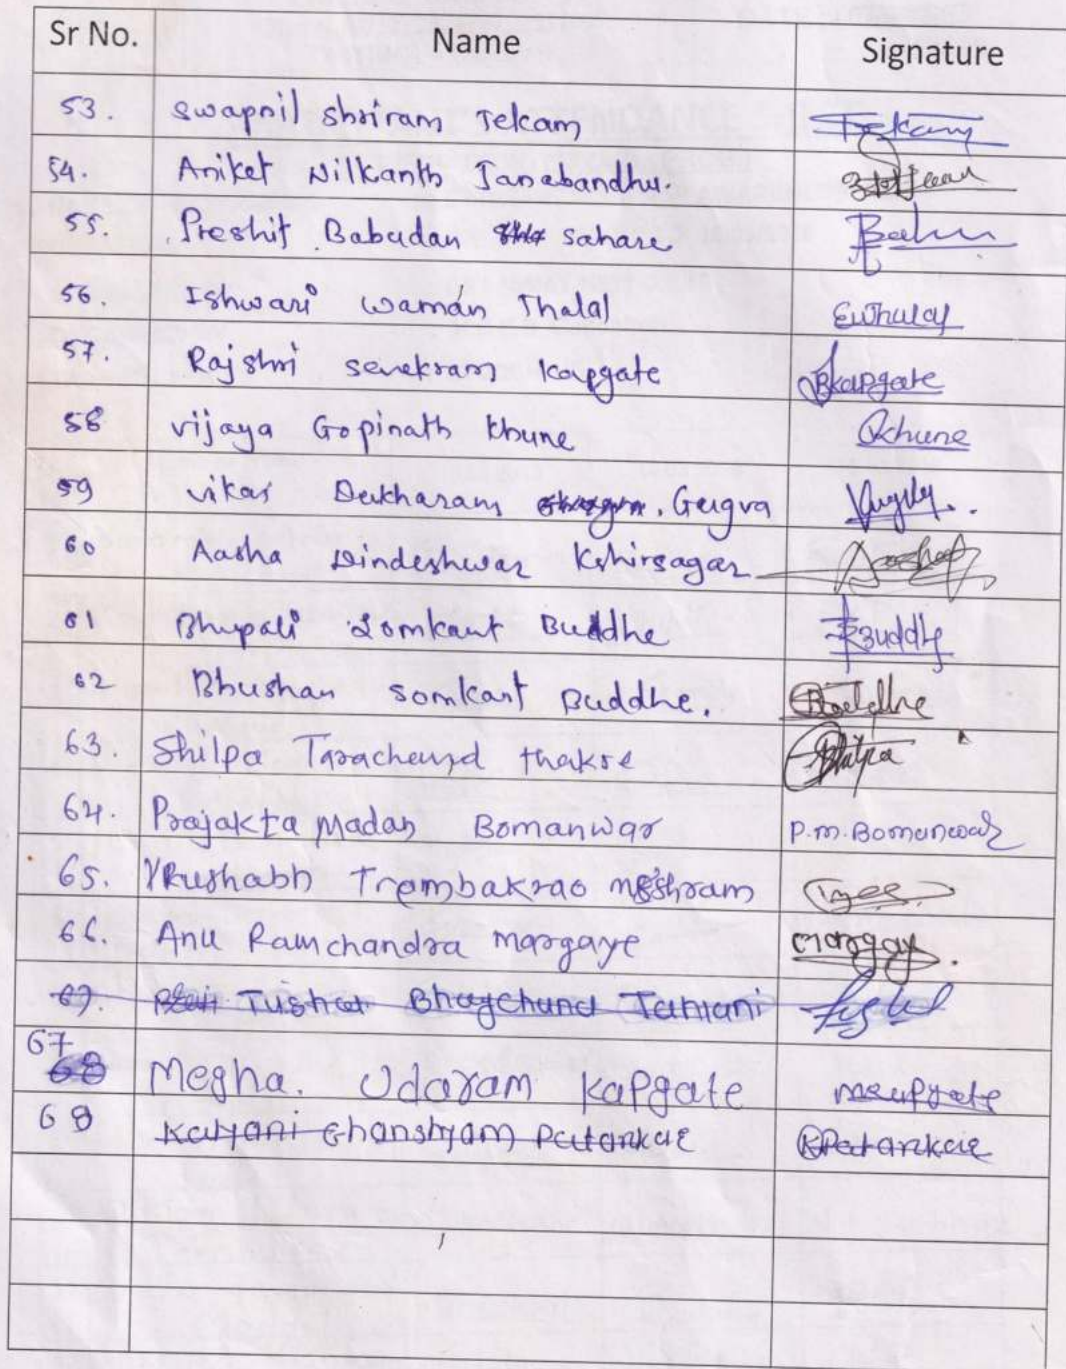 Sr No. Name Signature
53. Swapnil shriram Tekam Tekam
54. Aniket Nilkanth Janabandhu.
55. Preshit Babudan sahare
56. Ishwari waman Thalal
57. Rajshri sevakram kapgate Rkapgate
58 vijaya Gopinath Khune Khune
59 vikas Geigva
60 Aasha Dindeshwar Kshirsagar
61 Bhupali Somkant Buddhe Buddhe
62 Bhushan somkant Buddhe. Buddhe
63. Shilpa Tarachand thakre Shilpa
64. Prajakta Madan Bomanwar P.M.Bomanwar
65. VRushabh Trambakrao meshram
66. Anu Ramchandra margaye margay.
67. Tushar Bhaychand
67 68 Megha. Udaram Kapgate
68 Kalyani Ghanshyam Patankar KPatankar